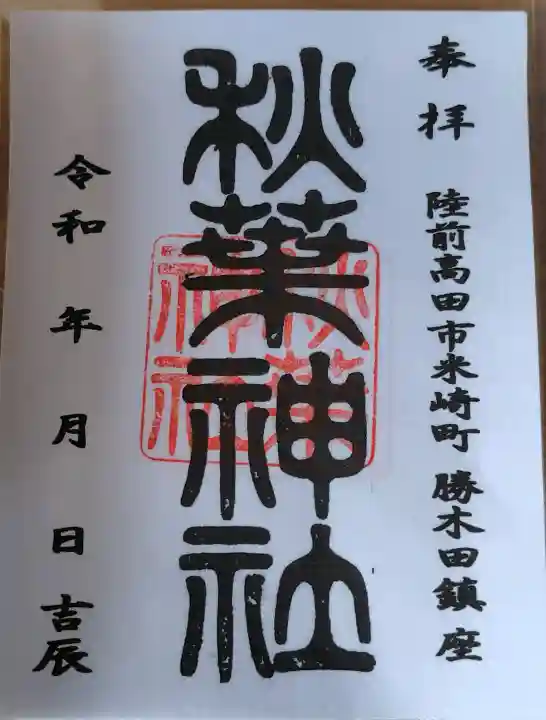 奉拝
陸前高田市米崎町 勝木田鎮座
秋葉神社
秋葉
神社
令和 年 月 日 吉辰